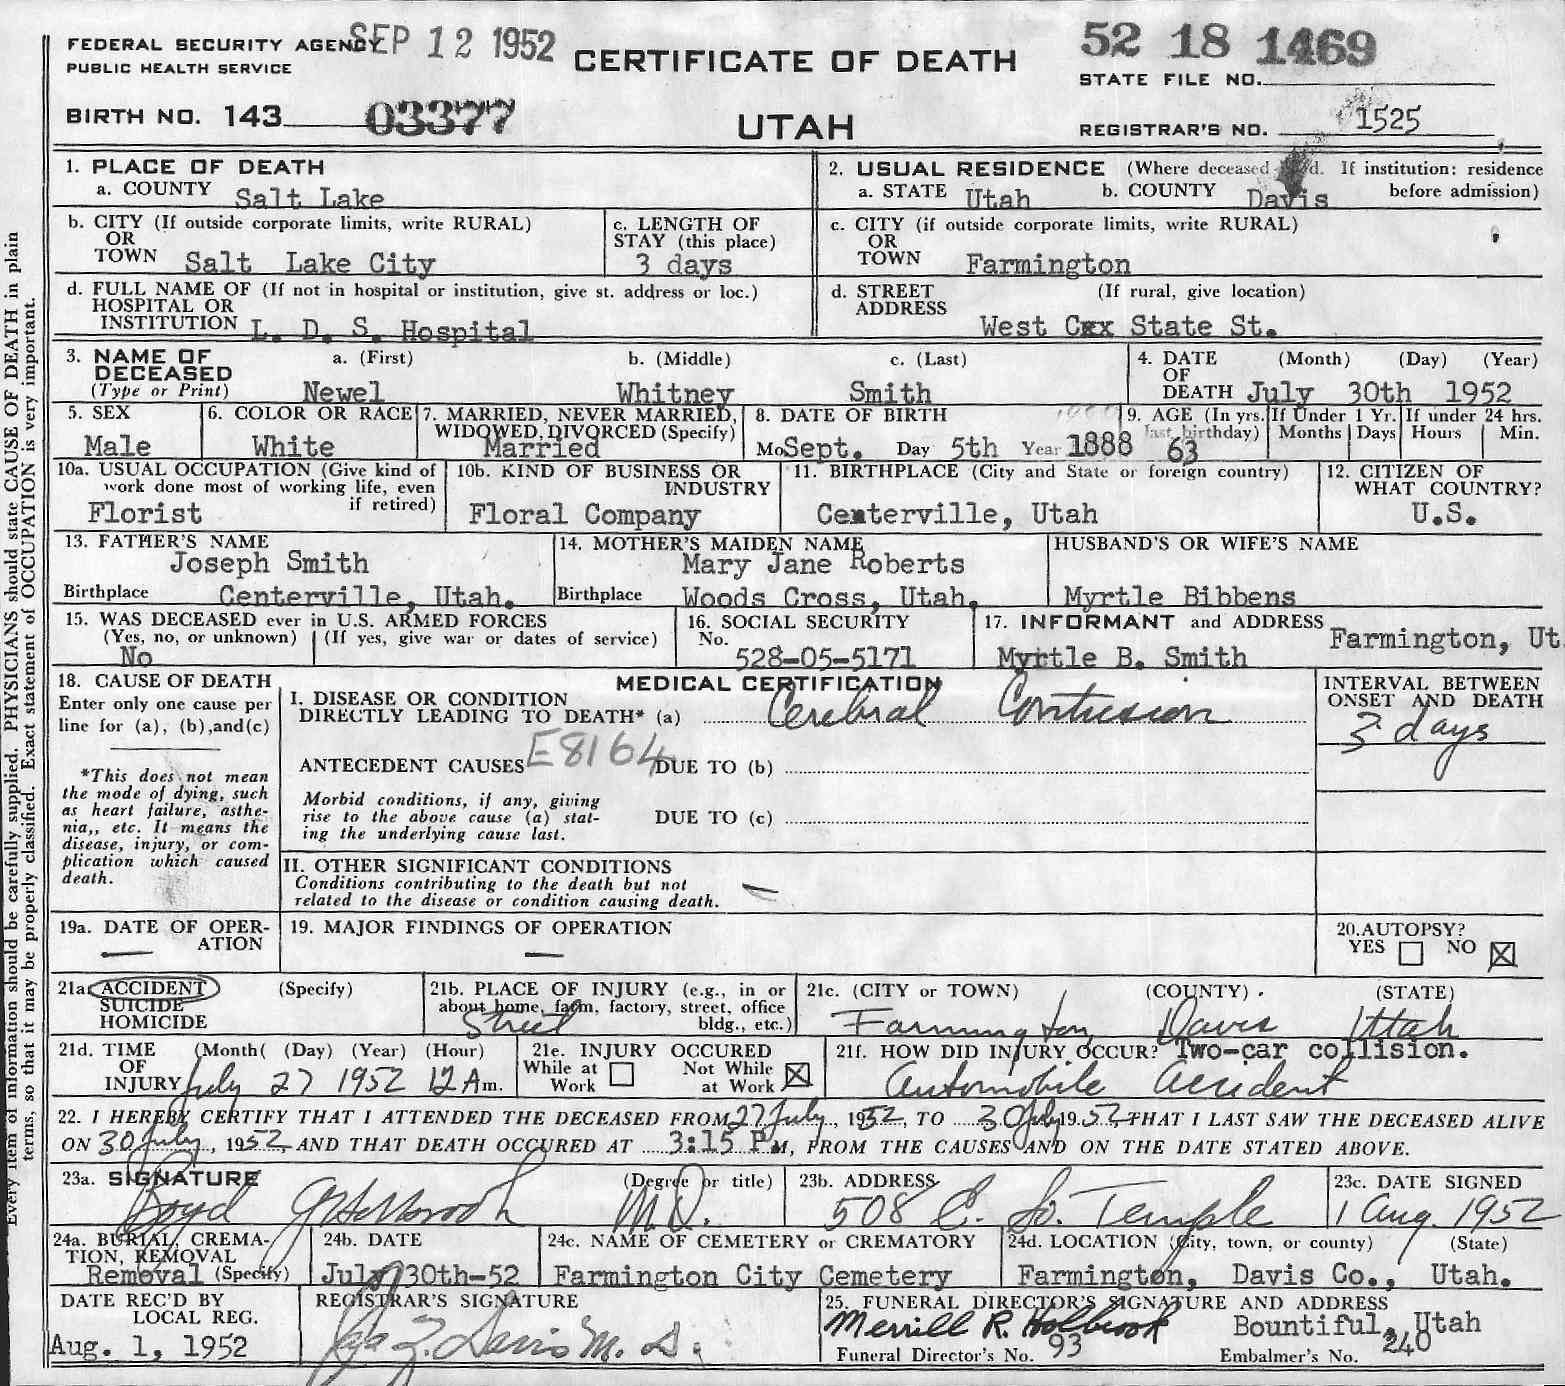 FEDERAL SECURITY AGENCY SEP 12 1952
PUBLIC HEALTH SERVICE
CERTIFICATE OF DEATH
52 18 1469
STATE FILE NO.
BIRTH NO. 143 03377
UTAH
REGISTRAR'S NO. 1525
1. PLACE OF DEATH
a. COUNTY Salt Lake
2. USUAL RESIDENCE (Where deceased d. If institution: residence before admission)
a. STATE Utah b. COUNTY Davis
b. CITY (If outside corporate limits, write RURAL)
OR
TOWN Salt Lake City
c. LENGTH OF
STAY (this place)
3 days
c. CITY (if outside corporate limits, write RURAL)
OR
TOWN Farmington
d. FULL NAME OF (If not in hospital or institution, give st. address or loc.)
HOSPITAL OR
INSTITUTION L. D. S. Hospital
d. STREET (If rural, give location)
ADDRESS
West Cxx State St.
3. NAME OF DECEASED
(Type or Print)
a. (First) b. (Middle) c. (Last)
Newel Whitney Smith
4. DATE (Month) (Day) (Year)
OF
DEATH July 30th 1952
5. SEX
Male
6. COLOR OR RACE
White
7. MARRIED, NEVER MARRIED,
WIDOWED, DIVORCED (Specify)
Married
8. DATE OF BIRTH
Mo Sept. Day 5th Year 1888
9. AGE (In yrs.
last birthday) 63
If Under 1 Yr.
Months Days
If under 24 hrs.
Hours Min.
10a. USUAL OCCUPATION (Give kind of
work done most of working life, even
if retired)
Florist
10b. KIND OF BUSINESS OR
INDUSTRY
Floral Company
11. BIRTHPLACE (City and State or foreign country)
Centerville, Utah
12. CITIZEN OF
WHAT COUNTRY?
U.S.
13. FATHER'S NAME
Joseph Smith
Birthplace Centerville, Utah.
14. MOTHER'S MAIDEN NAME
Mary Jane Roberts
Birthplace Woods Cross, Utah.
HUSBAND'S OR WIFE'S NAME
Myrtle Bibbens
15. WAS DECEASED ever in U.S. ARMED FORCES
(Yes, no, or unknown) (If yes, give war or dates of service)
No
16. SOCIAL SECURITY
No.
528-05-5171
17. INFORMANT and ADDRESS Farmington, Ut.
Myrtle B. Smith
18. CAUSE OF DEATH
Enter only one cause per
line for (a), (b),and(c)
*This does not mean
the mode of dying, such
as heart failure, asthe-
nia,, etc. It means the
disease, injury, or com-
plication which caused
death.
MEDICAL CERTIFICATION
I. DISEASE OR CONDITION
DIRECTLY LEADING TO DEATH* (a) Cerebral Contusion
ANTECEDENT CAUSES E8164 DUE TO (b)
Morbid conditions, if any, giving
rise to the above cause (a) stat-
ing the underlying cause last.
DUE TO (c)
II. OTHER SIGNIFICANT CONDITIONS
Conditions contributing to the death but not
related to the disease or condition causing death.
—
INTERVAL BETWEEN
ONSET AND DEATH
3 days
19a. DATE OF OPER-
ATION
—
19. MAJOR FINDINGS OF OPERATION
—
20.AUTOPSY?
YES ☐ NO ☒
21a. ACCIDENT (Specify)
SUICIDE
HOMICIDE
21b. PLACE OF INJURY (e.g., in or
about home, farm, factory, street, office
bldg., etc.)
Street
21c. (CITY or TOWN) (COUNTY) (STATE)
Farmington Davis Utah
21d. TIME (Month( (Day) (Year) (Hour)
OF
INJURY July 27 1952 12 Am.
21e. INJURY OCCURED
While at Work ☐ Not While at Work ☒
21f. HOW DID INJURY OCCUR? Two-car collision.
Automobile accident
22. I HEREBY CERTIFY THAT I ATTENDED THE DECEASED FROM 27 July, 1952, TO 30 July 1952 THAT I LAST SAW THE DECEASED ALIVE
ON 30 July, 1952 AND THAT DEATH OCCURED AT 3:15 P.M, FROM THE CAUSES AND ON THE DATE STATED ABOVE.
23a. SIGNATURE (Degree or title)
Boyd G Holbrook M.D.
23b. ADDRESS
508 E. So. Temple
23c. DATE SIGNED
1 Aug. 1952
24a. BURIAL, CREMA-
TION, REMOVAL
Removal (Specify)
24b. DATE
July 30th-52
24c. NAME OF CEMETERY or CREMATORY
Farmington City Cemetery
24d. LOCATION (City, town, or county) (State)
Farmington, Davis Co., Utah.
DATE REC'D BY
LOCAL REG.
Aug. 1, 1952
REGISTRAR'S SIGNATURE
Davis M. D.
25. FUNERAL DIRECTOR'S SIGNATURE AND ADDRESS
Merrill R. Holbrook Bountiful, Utah
Funeral Director's No. 93 Embalmer's No. 240
Every item of information should be carefully supplied. PHYSICIANS should state CAUSE OF DEATH in plain
terms, so that it may be properly classified. Exact statement of OCCUPATION is very important.